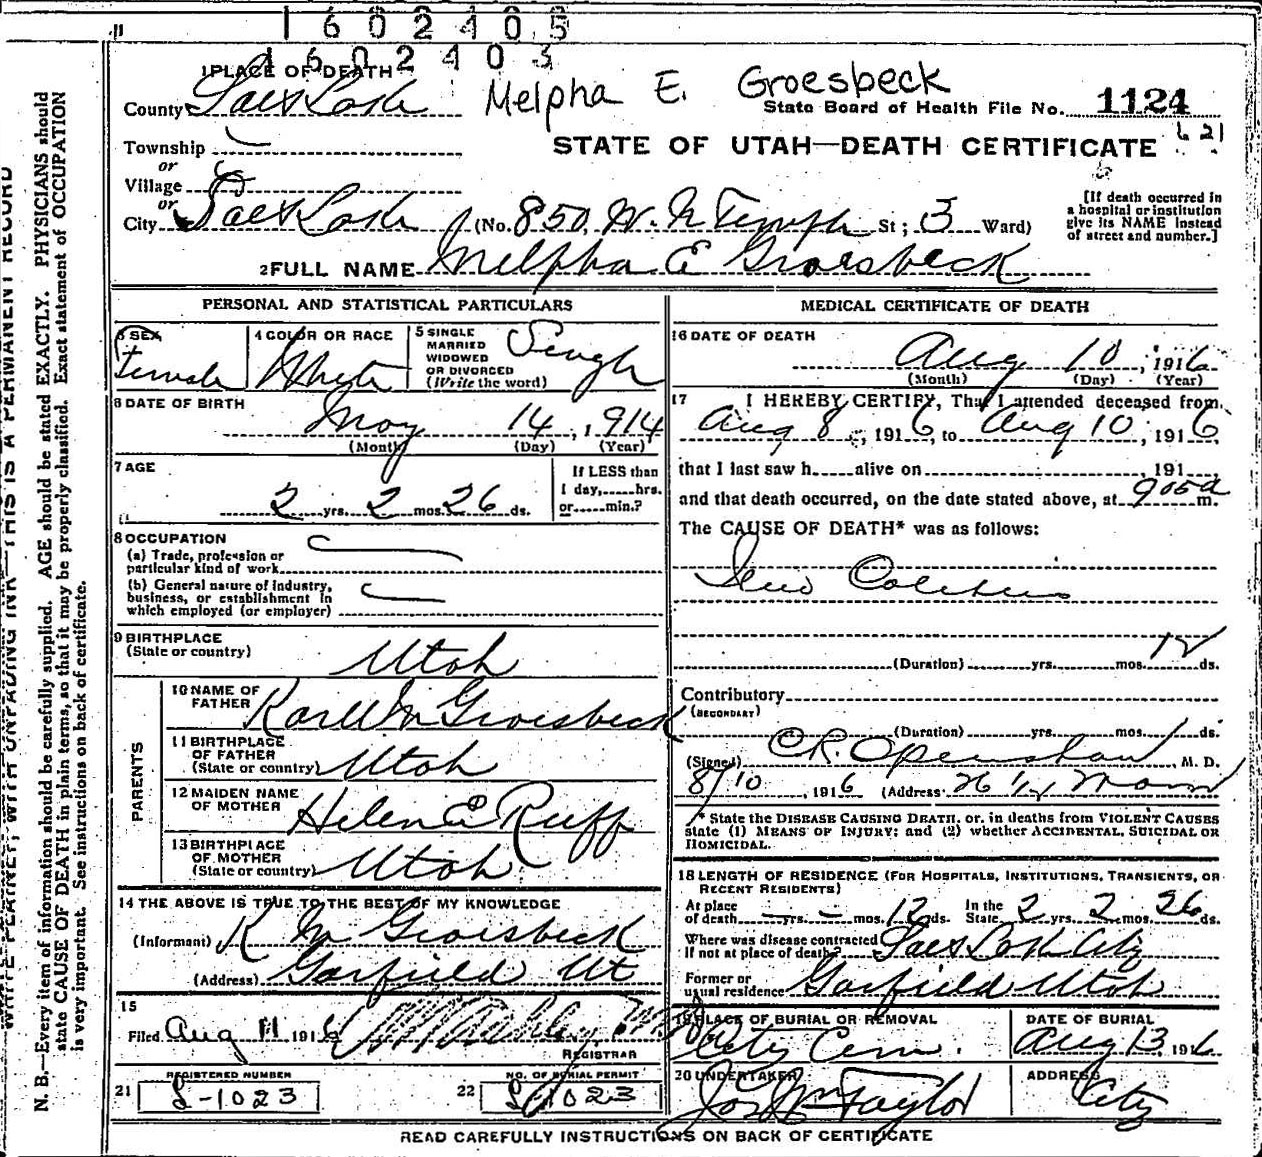 11
1602405
1602403
1 PLACE OF DEATH
Melpha E. Groesbeck
County Salt Lake
State Board of Health File No. 1124
621
Township
STATE OF UTAH—DEATH CERTIFICATE
or
Village
or
City Salt Lake (No. 850 W. N Temple St; 3 Ward)
[If death occurred in a hospital or institution give its NAME instead of street and number.]
2 FULL NAME Melpha E Groesbeck
PERSONAL AND STATISTICAL PARTICULARS
3 SEX Female
4 COLOR OR RACE White
5 SINGLE MARRIED WIDOWED OR DIVORCED (Write the word) Single
6 DATE OF BIRTH
May 14, 1914
(Month) (Day) (Year)
7 AGE
2 yrs. 2 mos. 26 ds.
If LESS than 1 day,......hrs. or......min.?
8 OCCUPATION
(a) Trade, profession or particular kind of work
(b) General nature of industry, business, or establishment in which employed (or employer)
9 BIRTHPLACE (State or country) Utah
PARENTS
10 NAME OF FATHER Karl M Groesbeck
11 BIRTHPLACE OF FATHER (State or country) Utah
12 MAIDEN NAME OF MOTHER Helen E Ruff
13 BIRTHPLACE OF MOTHER (State or country) Utah
14 THE ABOVE IS TRUE TO THE BEST OF MY KNOWLEDGE
(Informant) K M Groesbeck
(Address) Garfield Ut
15
Filed Aug 11 1916
REGISTRAR
REGISTERED NUMBER
21 L-1023
NO. OF BURIAL PERMIT
22 1023
MEDICAL CERTIFICATE OF DEATH
16 DATE OF DEATH
Aug 10, 1916
(Month) (Day) (Year)
17 I HEREBY CERTIFY, That I attended deceased from
Aug 8, 1916, to Aug 10, 1916,
that I last saw h......alive on......, 191...,
and that death occurred, on the date stated above, at 9 05 a m.
The CAUSE OF DEATH* was as follows:
Ileo Colitis
(Duration) yrs. mos. 12 ds.
Contributory
(SECONDARY)
(Duration) yrs. mos. ds.
(Signed) C R Openshaw, M. D.
8/10, 1916 (Address) 26 1/2 Main
* State the DISEASE CAUSING DEATH, or, in deaths from VIOLENT CAUSES state (1) MEANS OF INJURY; and (2) whether ACCIDENTAL, SUICIDAL OR HOMICIDAL.
18 LENGTH OF RESIDENCE (FOR HOSPITALS, INSTITUTIONS, TRANSIENTS, OR RECENT RESIDENTS)
At place of death — yrs. — mos. 12 ds. In the State 2 yrs. 2 mos. 26 ds.
Where was disease contracted If not at place of death? Salt Lake City
Former or usual residence Garfield Utah
19 PLACE OF BURIAL OR REMOVAL City Cem.
DATE OF BURIAL Aug 13, 1916
20 UNDERTAKER Jos Wm Taylor
ADDRESS City
READ CAREFULLY INSTRUCTIONS ON BACK OF CERTIFICATE
WRITE PLAINLY, WITH UNFADING INK—THIS IS A PERMANENT RECORD
N. B.—Every item of information should be carefully supplied. AGE should be stated EXACTLY. PHYSICIANS should
state CAUSE OF DEATH in plain terms, so that it may be properly classified. Exact statement of OCCUPATION
is very important. See instructions on back of certificate.